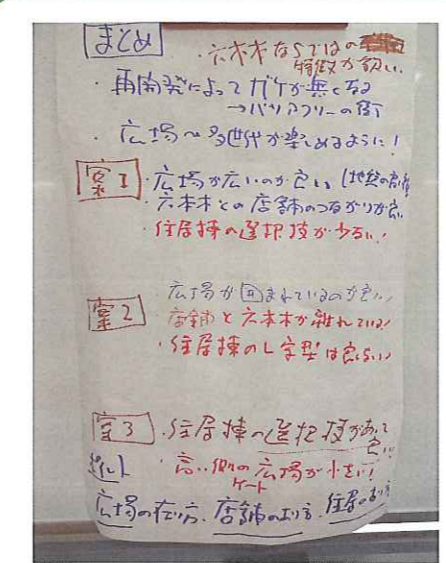 まとめ
・六本木ならではの
特徴が欲しい
・再開発によってガケが無くなる
→バリアフリーの街
・広場〜多世代が楽しめるように!
案1
・広場が広いのが良い(地盤の高
・六本木との店舗のつながりが良
・住居棟の選択技が少ない
案2
広場が囲まれているのが良い
店舗と六本木が離れている
・住居棟のL字型は良くない
案3
・住居棟の選択技があって
良い
・高い側の広場が小さい!
ゲート
広場の在り方、店舗の在り方、住居の在り方